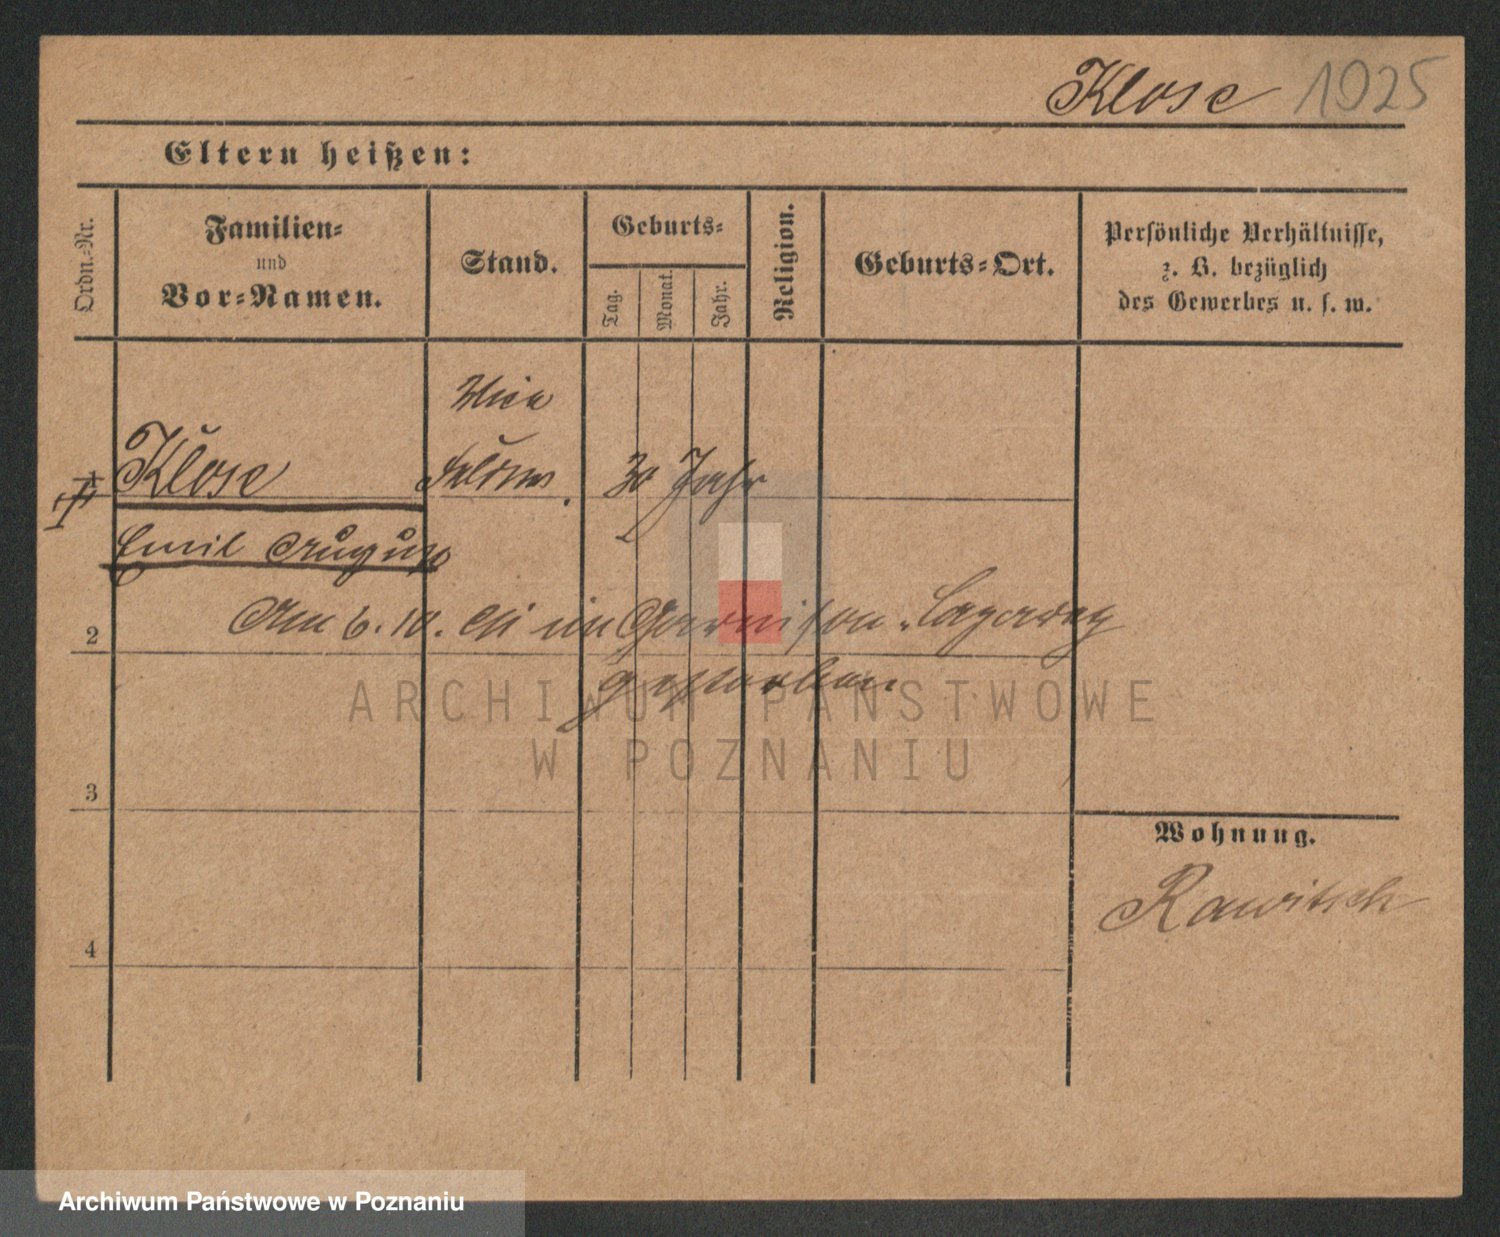 Klose 1025
Eltern heißen:
Ordn.-Nr.
Familien-
und
Vor-Namen.
Stand.
Geburts-
Tag.
Monat.
Jahr.
Religion.
Geburts-Ort.
Persönliche Verhältnisse,
z. B. bezüglich
des Gewerbes u. s. w.
Vice
Klose
Feldw.
30 Jahr
Emil August
Am 6.10. im Garnison-Lazareth
2
gestorben
ARCHIWUM PAŃSTWOWE
W POZNANIU
3
Wohnung.
Rawitsch
4
Archiwum Państwowe w Poznaniu